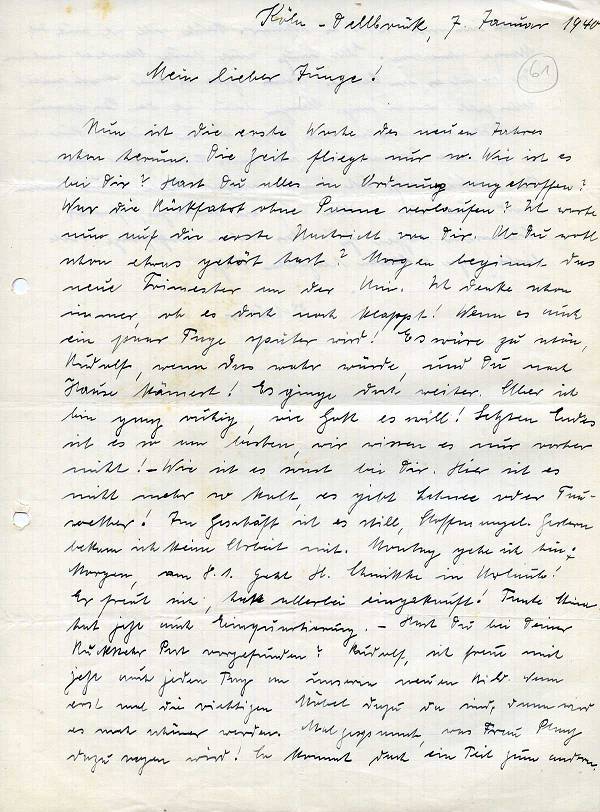 Köln-Dellbrück, 7. Januar 1940
61
Mein lieber Junge!
Nun ist die erste Woche des neuen Jahres
schon herum. Die Zeit fliegt nur so. Wie ist es
bei Dir? Hast Du alles in Ordnung angetroffen?
War die Rückfahrt ohne Panne verlaufen? Ich warte
nun auf die erste Nachricht von Dir. Ob Du wohl
schon etwas gehört hast? Morgen beginnt das
neue Trimester an der Uni. Ich denke schon
immer, ob es doch noch klappt! Wenn es auch
ein paar Tage später wird! Es wäre zu schön,
Rudolf, wenn das wahr würde, und Du nach
Hause kämest! Es ginge doch weiter. Aber ich
bin ganz ruhig, wie Gott es will! Letzten Endes
ist es so am besten, wir wissen es nur vorher
nicht! - Wie ist es sonst bei Dir. Hier ist es
nicht mehr so kalt, es gibt Schnee oder Tau-
wetter! Im Geschäft ist es still, Stoffmangel. Gestern
bekam ich keine Arbeit mit. Montag gehe ich hin.
Morgen, am 8.1. geht H. in Urlaub!
Er freut sich, hat allerlei eingekauft! Tante
hat jetzt auch Einquartierung. - Hast Du bei Deiner
Rückkehr Post vorgefunden? Rudolf, ich freue mich
jetzt auch jeden Tag an unserem neuen Bild. Wenn
erst mal die richtigen Möbel dazu da sind, dann wird
es noch schöner werden. Mal gespannt, was Frau
dazu sagen wird! So kommt doch ein Teil zum andern.